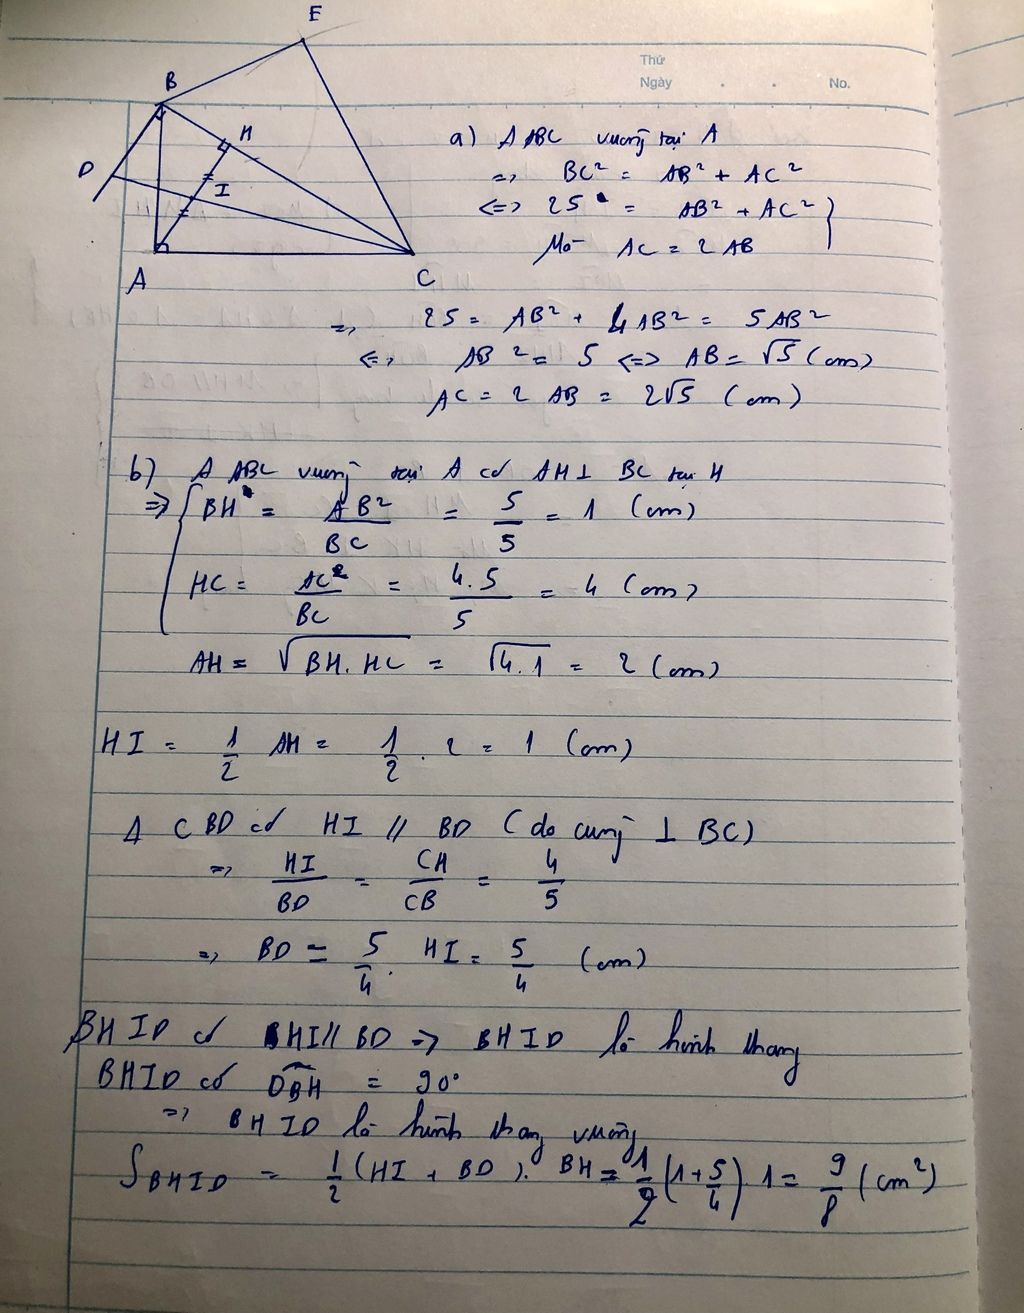 E
Thứ
Ngày . . No.
B
H
D
I
A
C
a) Δ ABC vuông tại A
=> BC² = AB² + AC²
<=> 25 = AB² + AC² }
Mà AC = 2 AB
=> 25 = AB² + 4AB² = 5AB²
<=> AB² = 5 <=> AB = √5 (cm)
AC = 2 AB = 2√5 (cm)
b) Δ ABC vuông tại A có AH ⊥ BC tại H
=> { BH = AB²/BC = 5/5 = 1 (cm)
HC = AC²/BC = 4.5/5 = 4 (cm)
AH = √BH.HC = √4.1 = 2 (cm)
HI = 1/2 AH = 1/2 . 2 = 1 (cm)
Δ CBD có HI // BD (do cùng ⊥ BC)
=> HI/BD = CH/CB = 4/5
=> BD = 5/4 . HI = 5/4 (cm)
BHID có HI // BD => BHID là hình thang
BHID có D̂BH = 90°
=> BHID là hình thang vuông
S BHID = 1/2 (HI + BD). BH = 1/2 (1 + 5/4) . 1 = 9/8 (cm²)